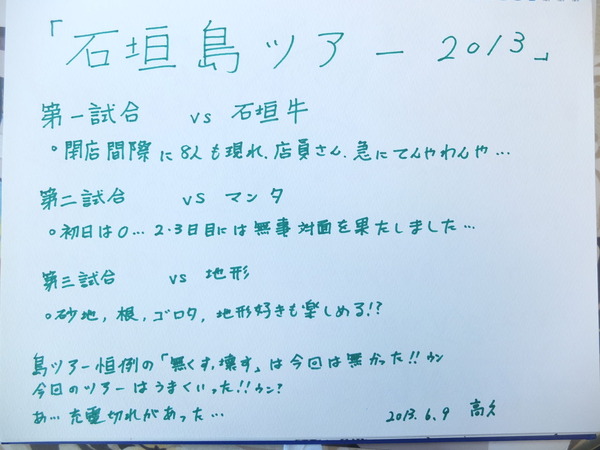 「石垣島ツアー 2013」
第一試合 vs 石垣牛
。閉店間際に8人も現れ、店員さん、急にてんやわんや…
第二試合 vs マンタ
。初日は0… 2・3日目には無事対面を果たしました…
第三試合 vs 地形
。砂地, 根, ゴロタ, 地形好きも楽しめる!?
島ツアー恒例の「無くす、壊す」は今回は無かった!! ウン
今回のツアーはうまくいった!! ウン?
あ… 充電切れがあった…
2013. 6. 9 高久